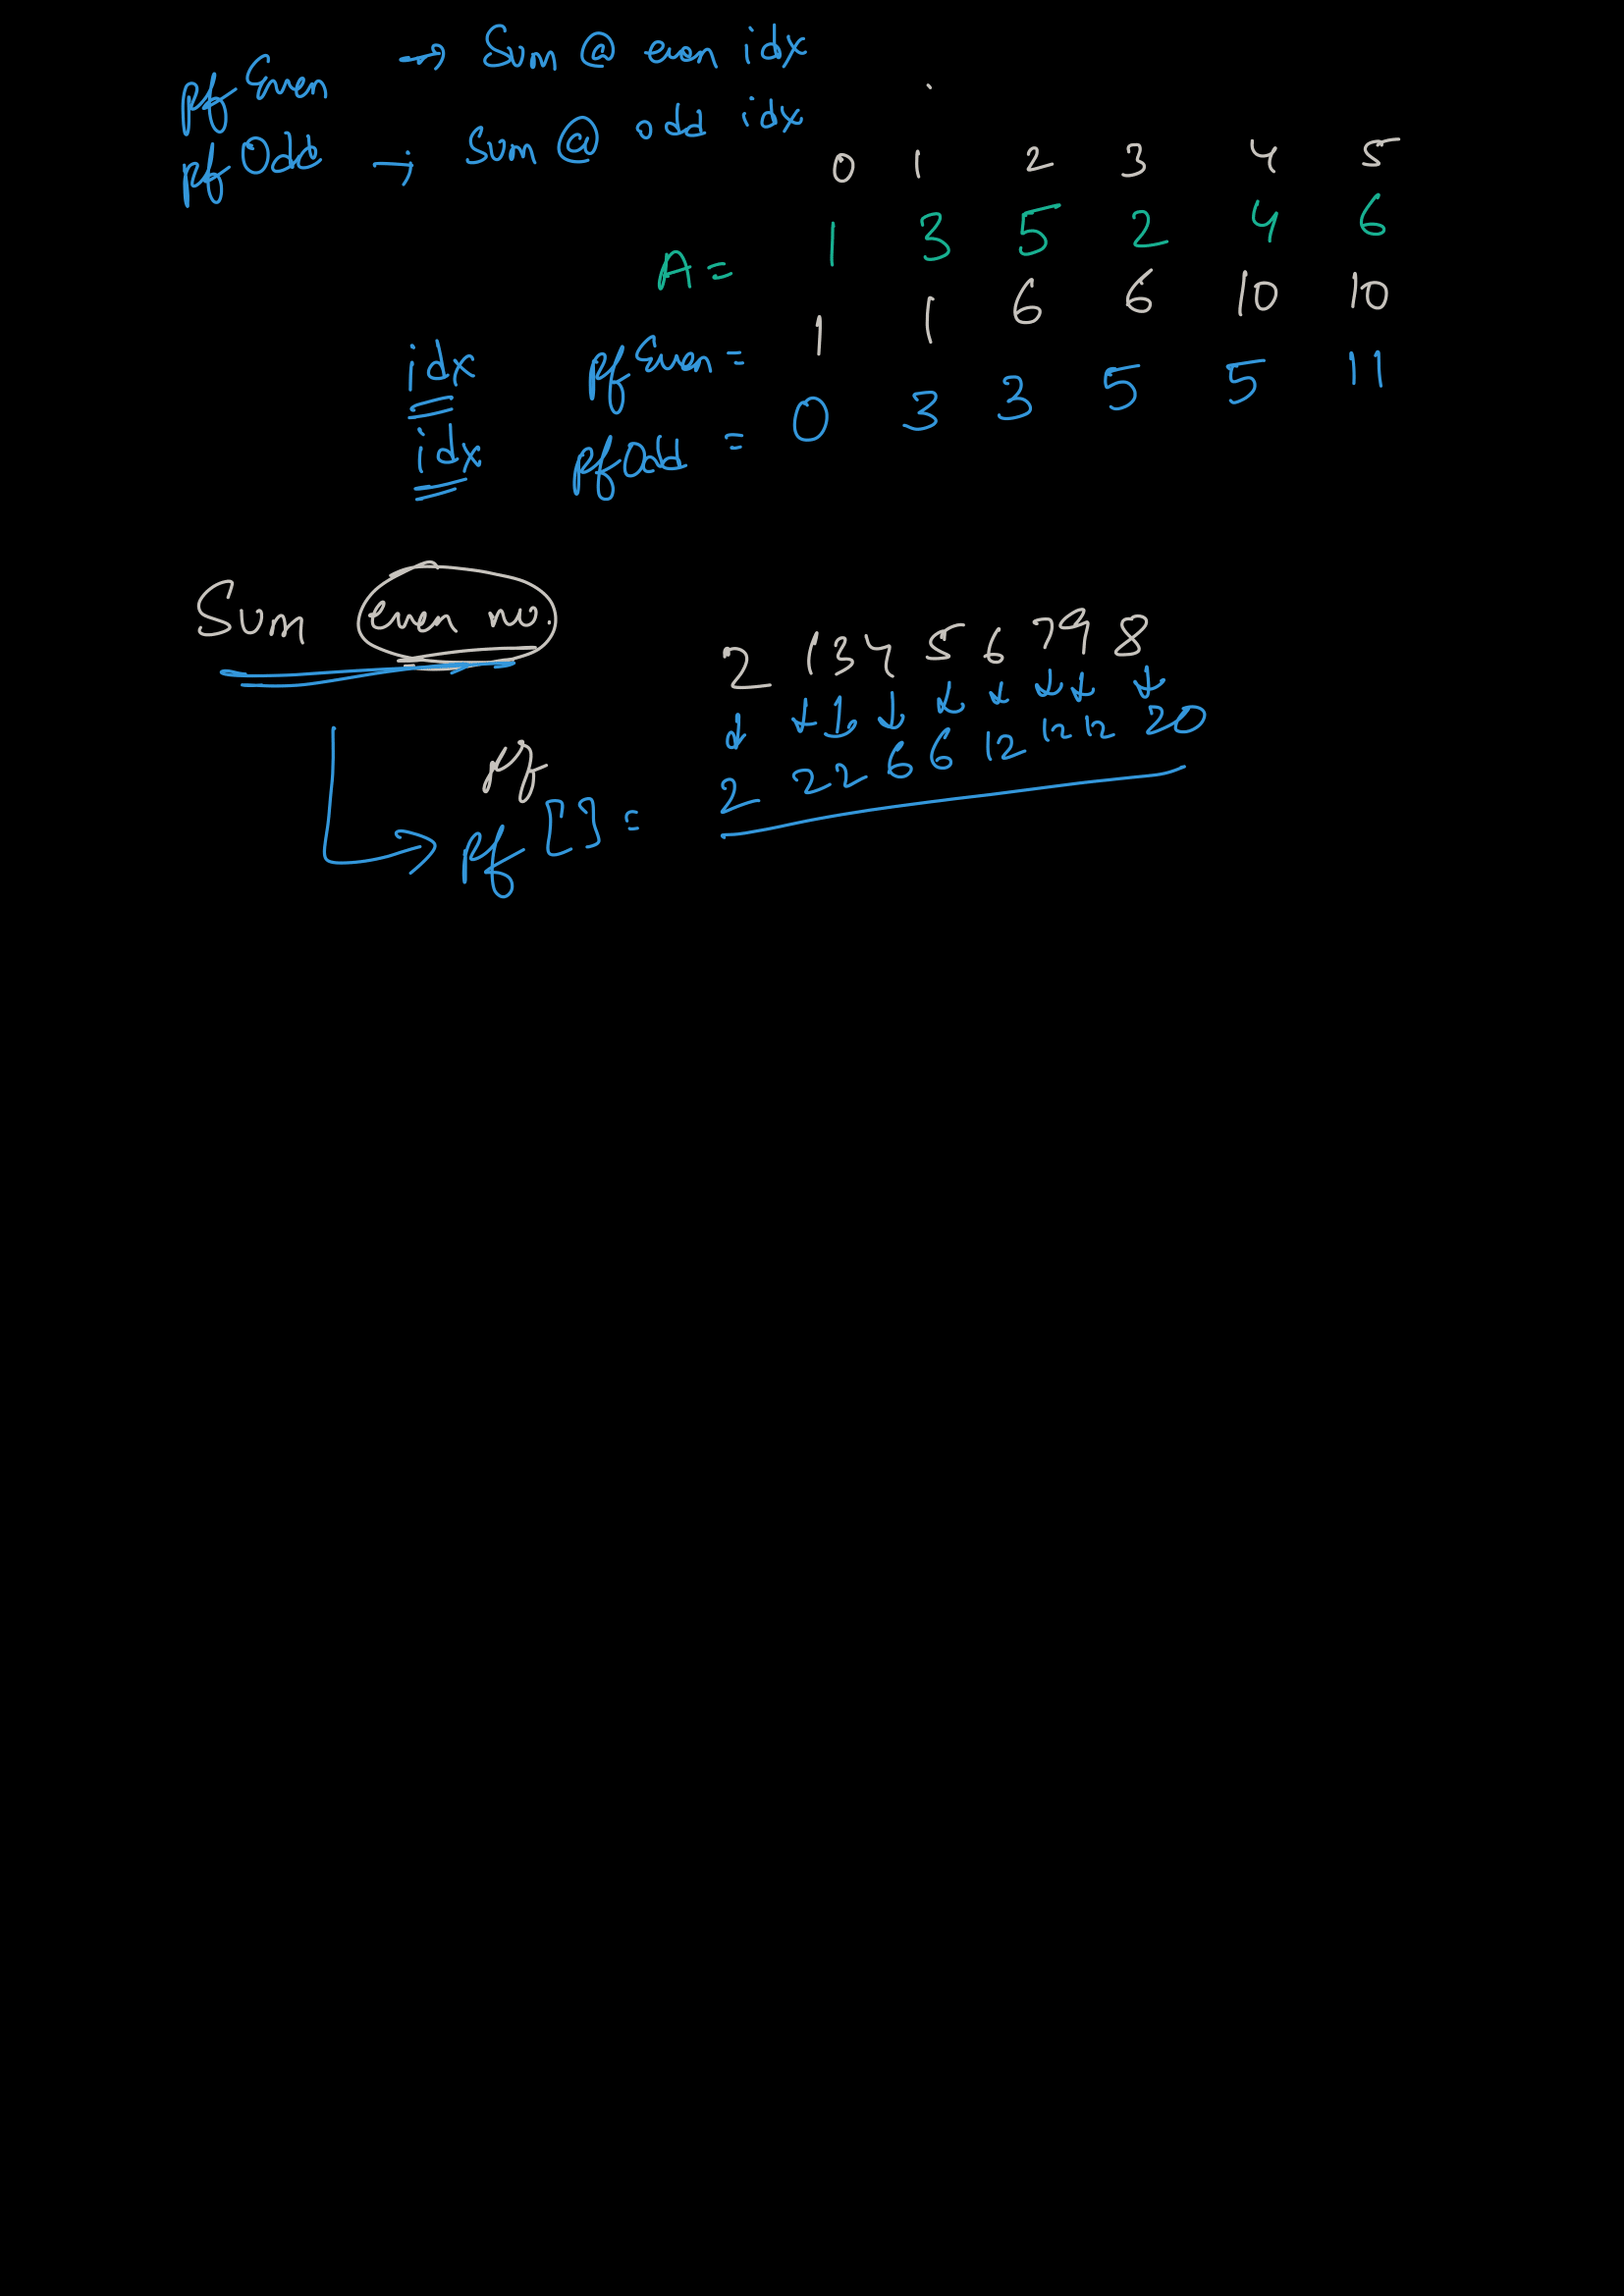 pfEven → Sum @ even idx
pfOdd → Sum @ odd idx
0 1 2 3 4 5
A = 1 3 5 2 4 6
idx pfEven = 1 1 6 6 10 10
idx pfOdd = 0 3 3 5 5 11
Sum even no.
2 1 3 4 5 6 7 9 8
↓ ↓ ↓ ↓ ↓ ↓ ↓ ↓ ↓
pf
pf [] = 2 2 2 6 6 12 12 12 20